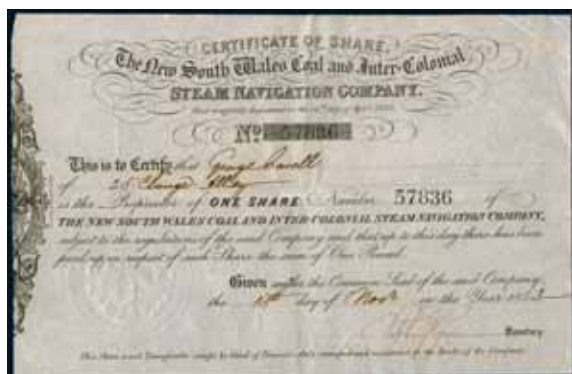 CERTIFICATE OF SHARE,
The New South Wales Coal and Inter-Colonial
STEAM NAVIGATION COMPANY.
No. 57836
This is to Certify that George
of 28 Change Alley
is the Proprietor of ONE SHARE Number 57836 of
THE NEW SOUTH WALES COAL AND INTER-COLONIAL STEAM NAVIGATION COMPANY,
subject to the regulations of the said Company and that up to this day there has been
paid up in respect of such Share the sum of One Pound.
Given under the Common Seal of the said Company,
the day of Novr in the Year
Secretary